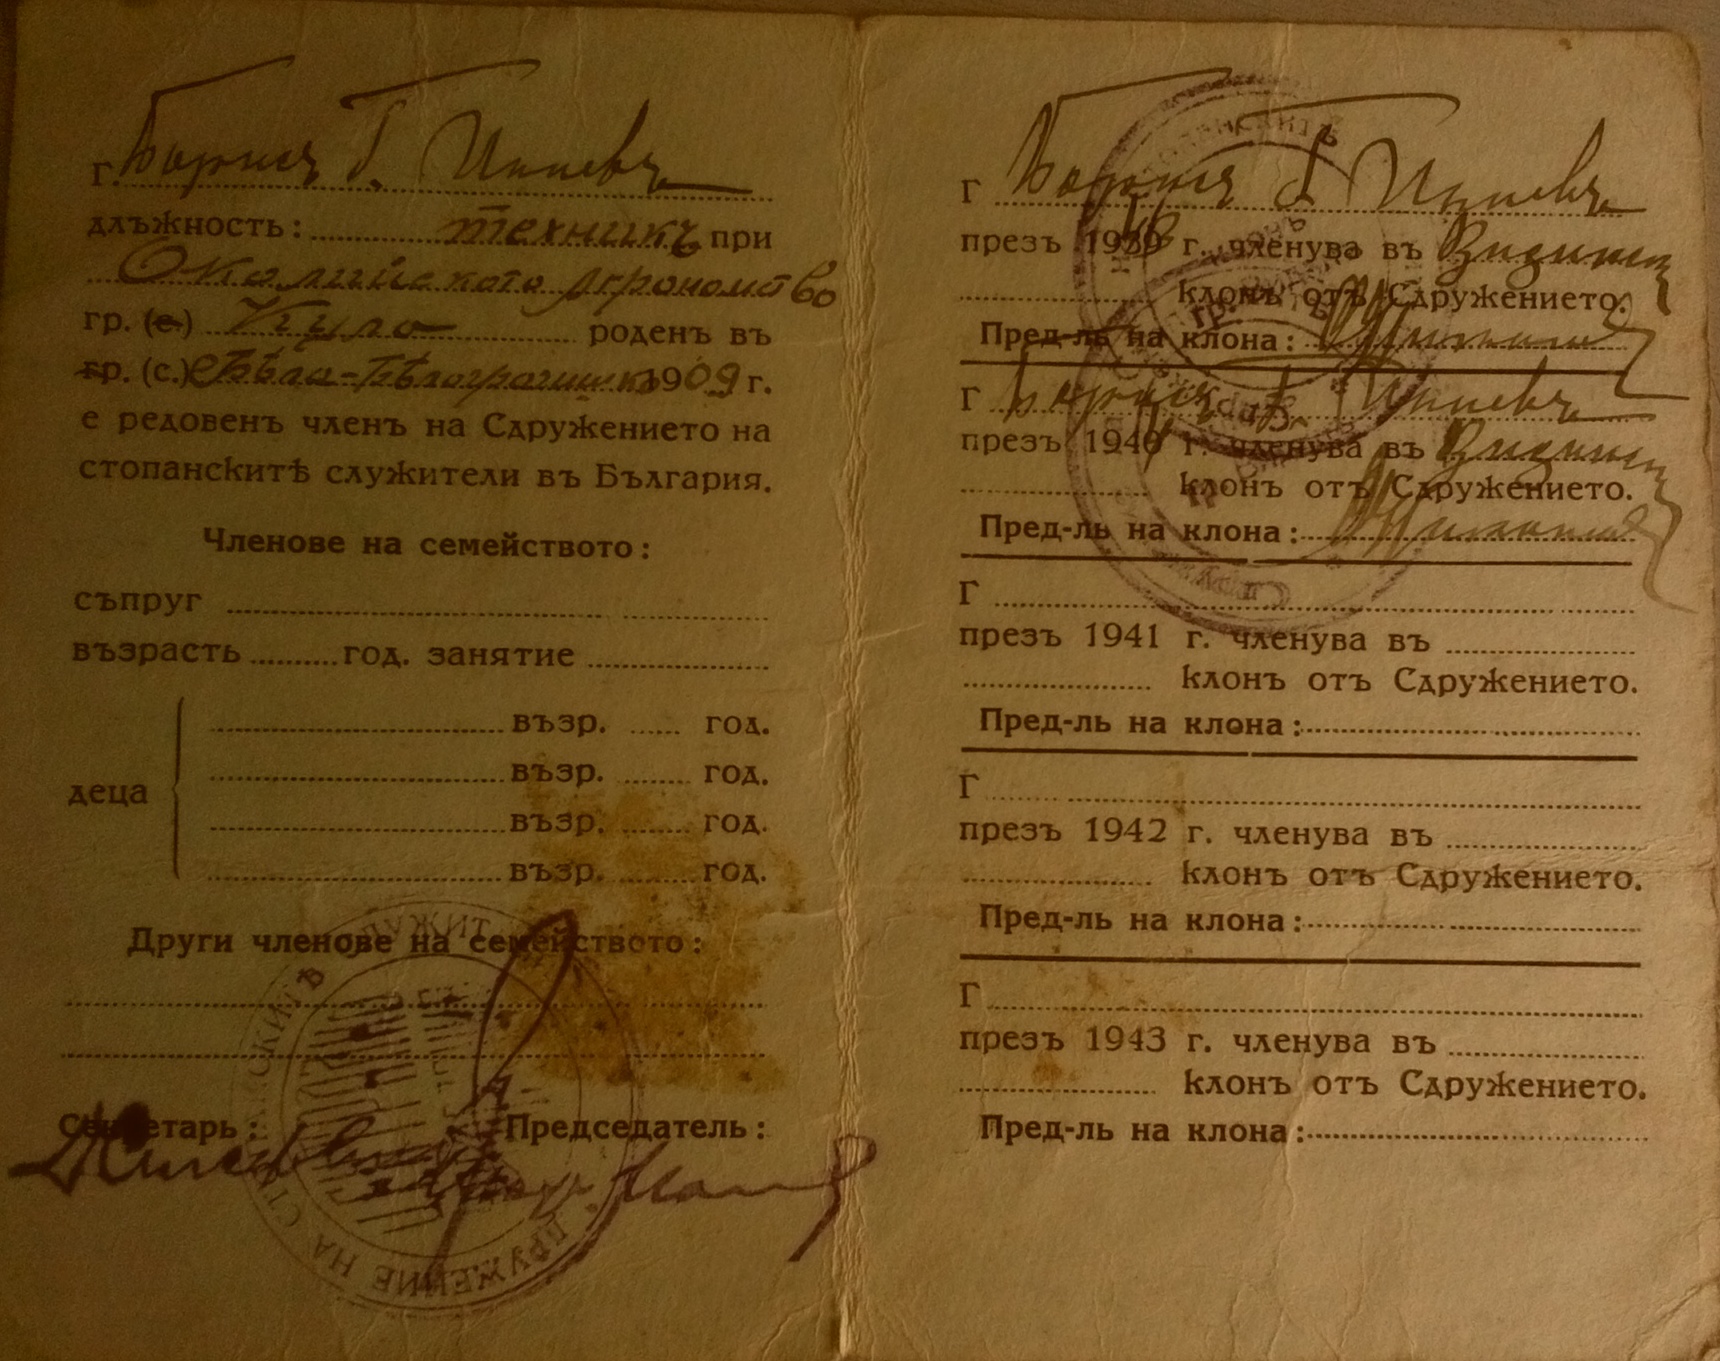 г. Борисъ Г. Ценевъ
длъжность: техникъ при
Околийското Агрономство
гр. (с.) Кула роденъ въ
гр. (с.) 1909 г.
е редовенъ членъ на Сдружението на
стопанскитѣ служители въ България.
Членове на семейството:
съпруг
възрасть год. занятие
възр. год.
възр. год.
деца
възр. год.
възр. год.
Други членове на семейството:
Секретарь: Председатель:
Г Борисъ Г Ценевъ
презъ 1939 г. членува въ Видинския
клонъ отъ Сдружението.
Пред-ль на клона:
Г Борисъ Г Ценевъ
презъ 1940 г. членува въ Видинския
клонъ отъ Сдружението.
Пред-ль на клона:
Г
презъ 1941 г. членува въ
клонъ отъ Сдружението.
Пред-ль на клона:
Г
презъ 1942 г. членува въ
клонъ отъ Сдружението.
Пред-ль на клона:
Г
презъ 1943 г. членува въ
клонъ отъ Сдружението.
Пред-ль на клона: